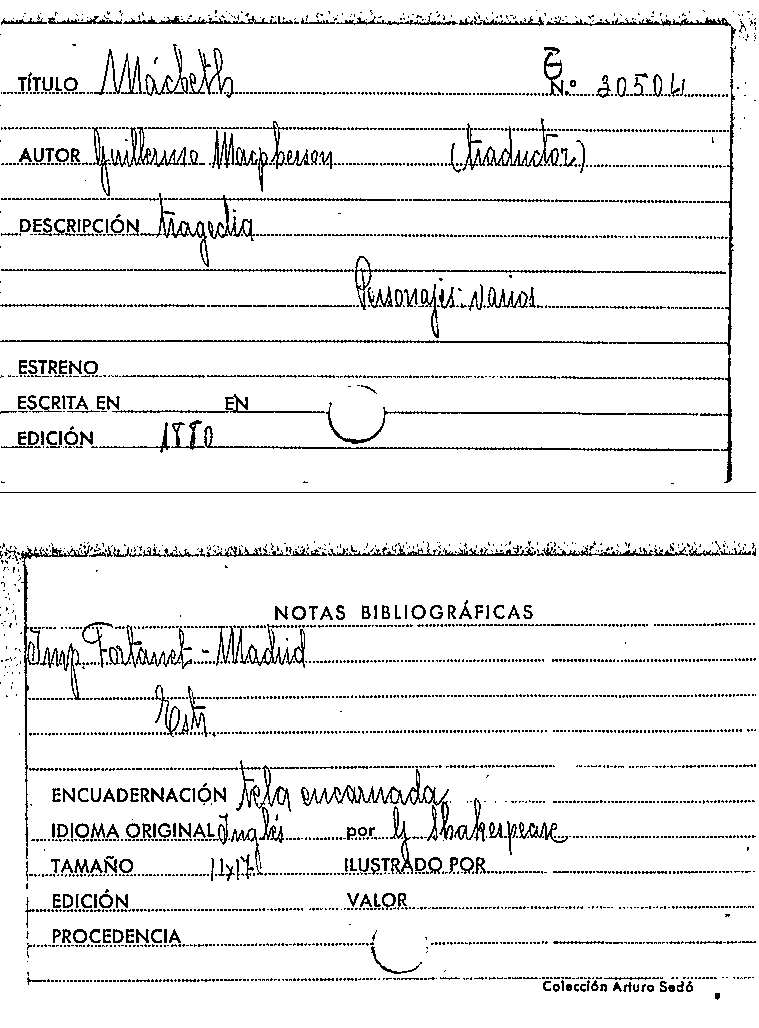 TÍTULO Mácbeth N.º 205041
AUTOR Guillermo Macpherson (traductor)
DESCRIPCIÓN tragedia
Personajes: varios
ESTRENO
ESCRITA EN EN
EDICIÓN 1880
NOTAS BIBLIOGRÁFICAS
Imp. Fortanet - Madrid
Estr.
ENCUADERNACIÓN tela encarnada
IDIOMA ORIGINAL Inglés por G Shakespeare
TAMAÑO 11x17 ILUSTRADO POR
EDICIÓN VALOR
PROCEDENCIA
Colección Arturo Sedó